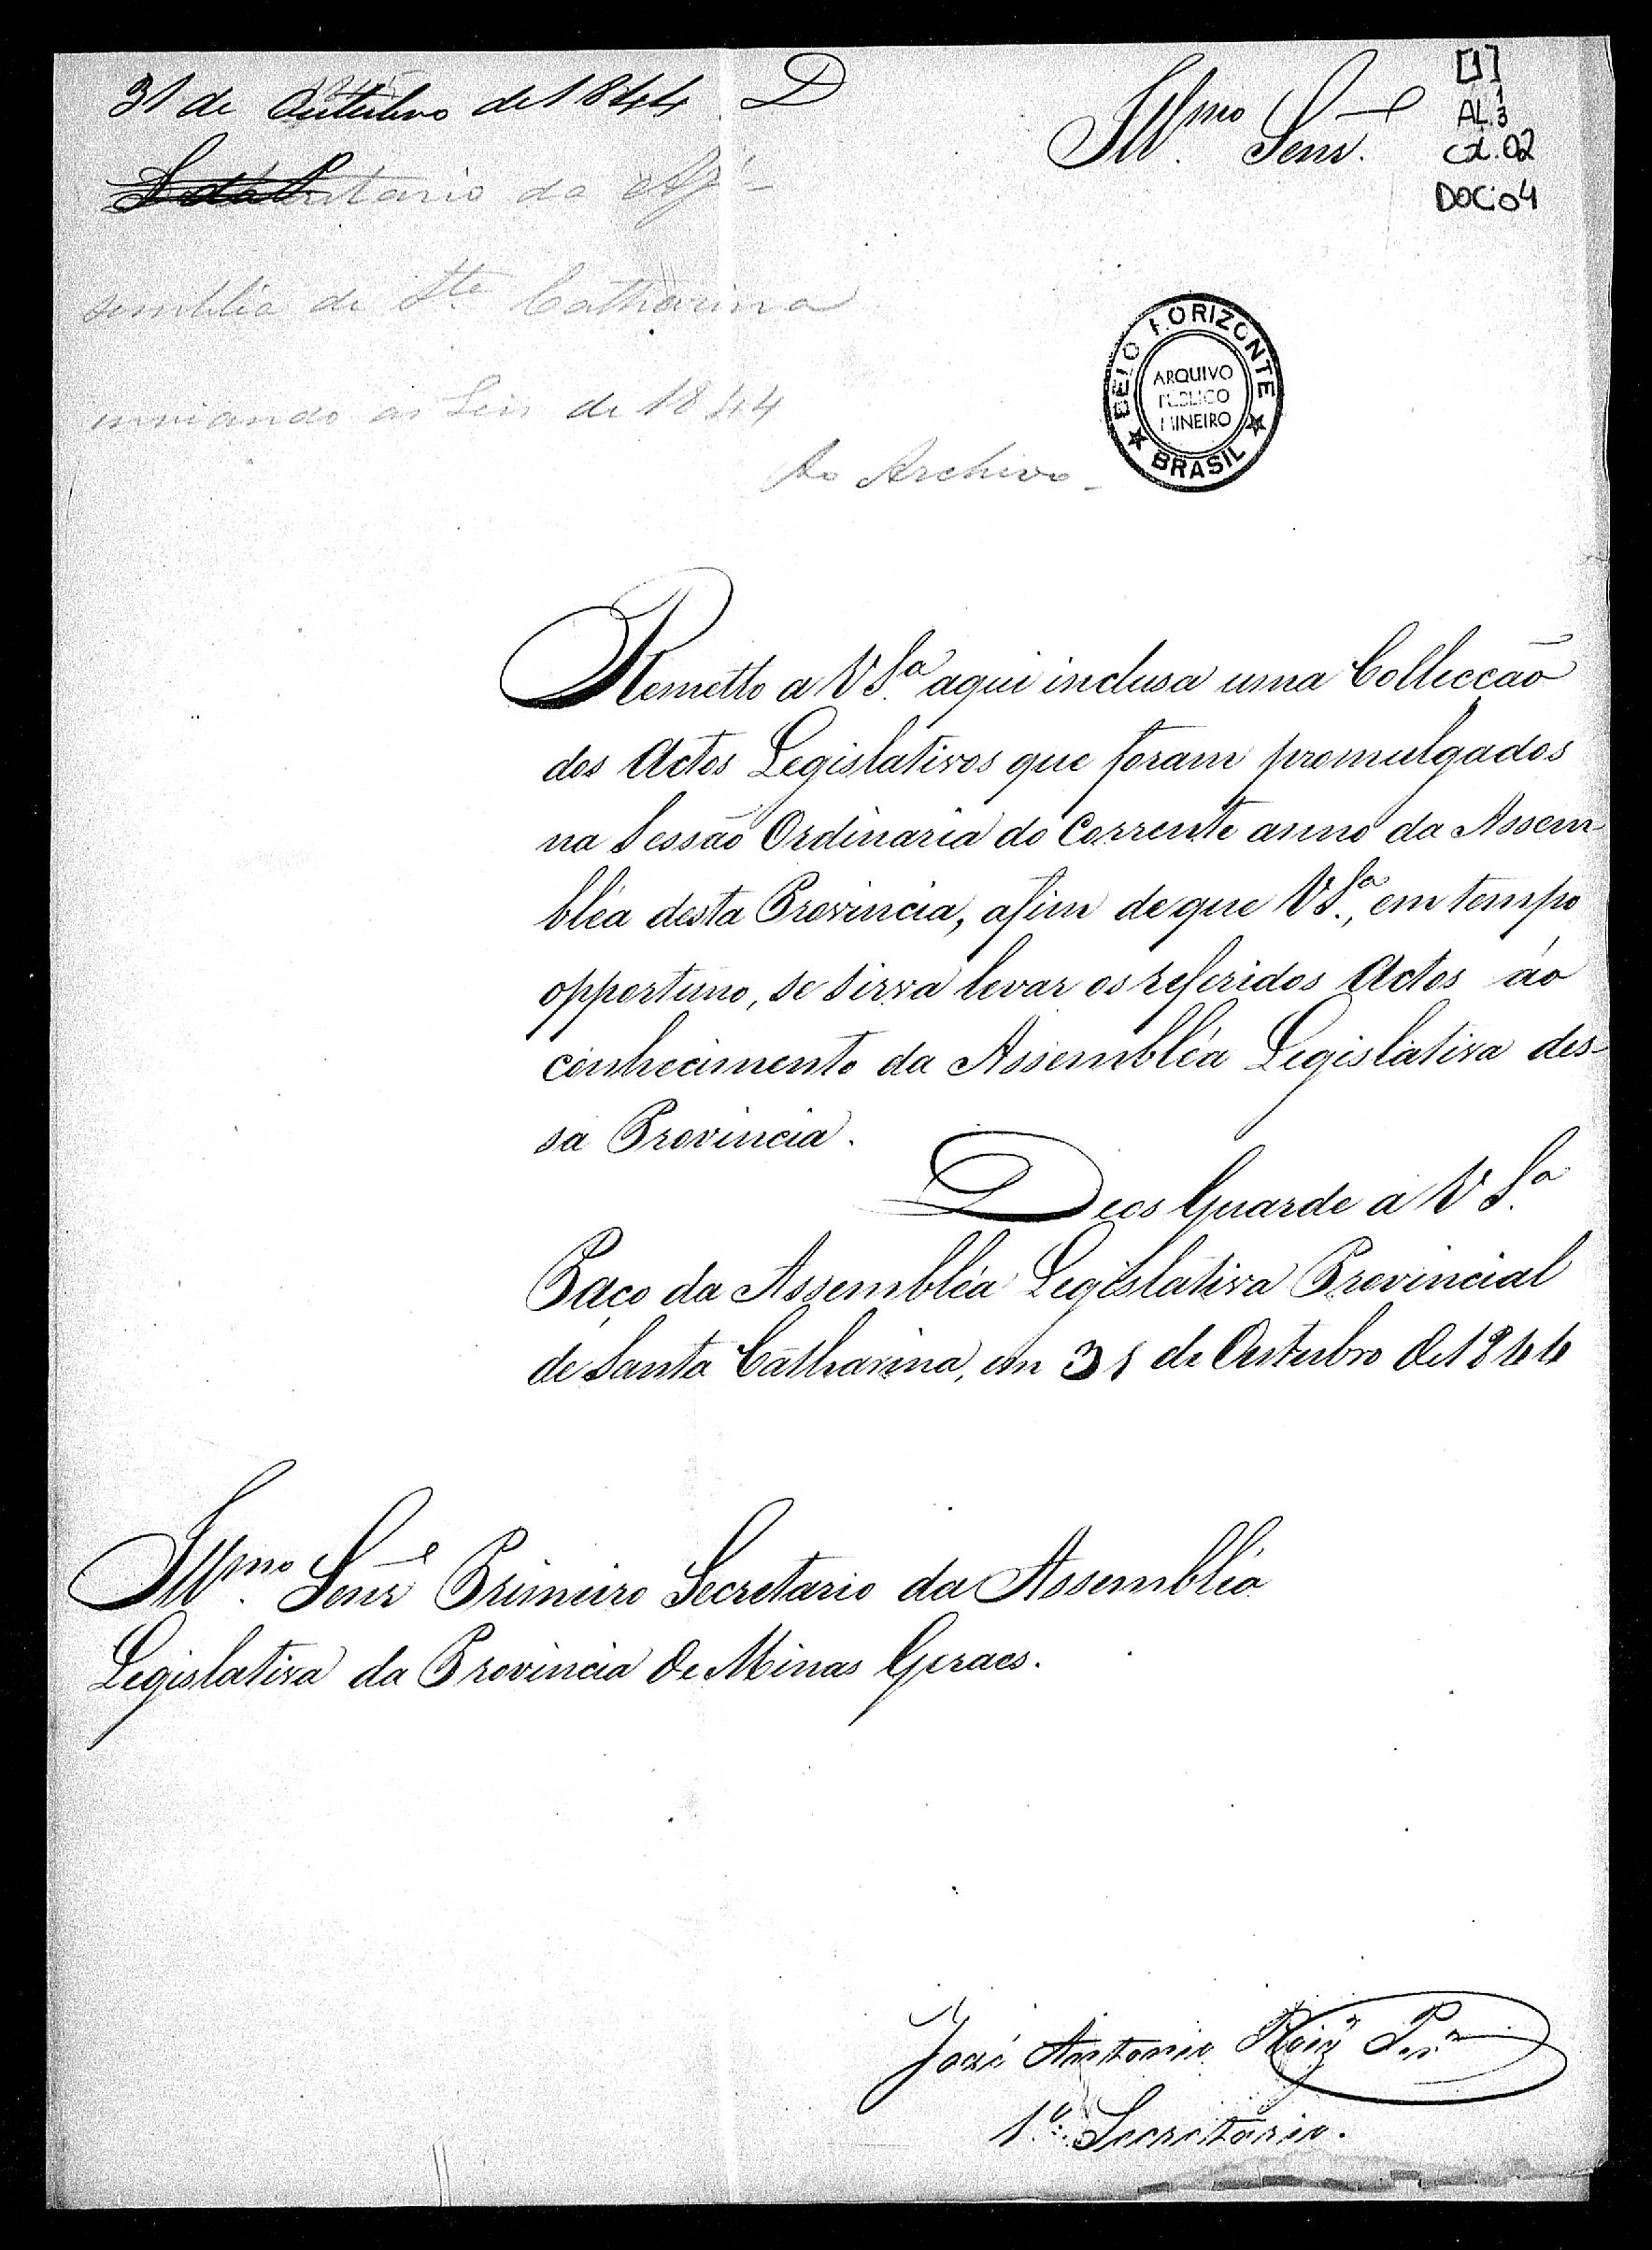 31 de Outubro de 1844 D
Illmo. Senr.
[1]
AL.1.3
cx. 02
DOC: 04
tario da As-
semblea de Sta Catharina
enviando as Leis de 1844
Ao Archivo -
BELO HORIZONTE
ARQUIVO
PUBLICO
MINEIRO
★ BRASIL ★
Remetto a V Sa. aqui inclusa uma Collecção
dos Actos Legislativos que foram promulgados
na Sessão Ordinaria do Corrente anno da Assem-
bléa desta Provincia, afim de que V Sa., em tempo
opportuno, se sirva levar os referidos Actos ao
conhecimento da Assembléa Legislativa des-
sa Provincia.
Deos Guarde a V Sa.
Paço da Assembléa Legislativa Provincial
de Santa Catharina, em 31 de Outubro de 1844
Illmo. Senr Primeiro Secretario da Assembléa
Legislativa da Provincia de Minas Geraes.
José Antonio Roiz
1º Secretario.